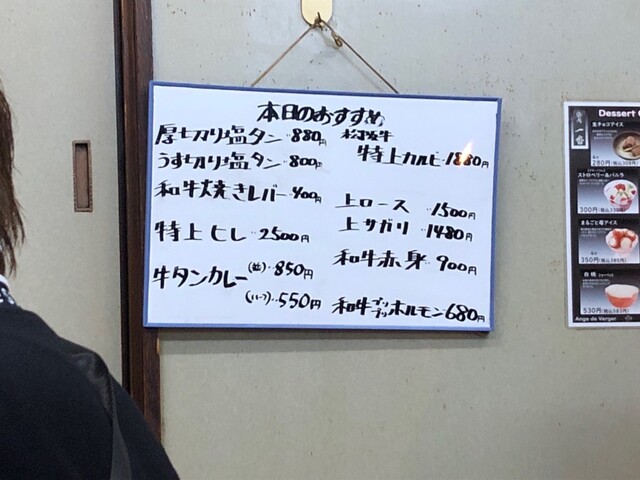 本日のおすすめ
厚切り塩タン 880円
うす切り塩タン 800円
和牛焼きレバー 400円
特上ヒレ 2500円
牛タンカレー(並) 850円
(ハーフ) 550円
松阪牛
特上カルビ 1880円
上ロース 1500円
上サガリ 1480円
和牛赤身 900円
和牛ホルモン 680円
Dessert
生チョコアイス
280円
ストロベリー&バニラ
300円
まるごと苺アイス
350円
530円
Ange de Verger